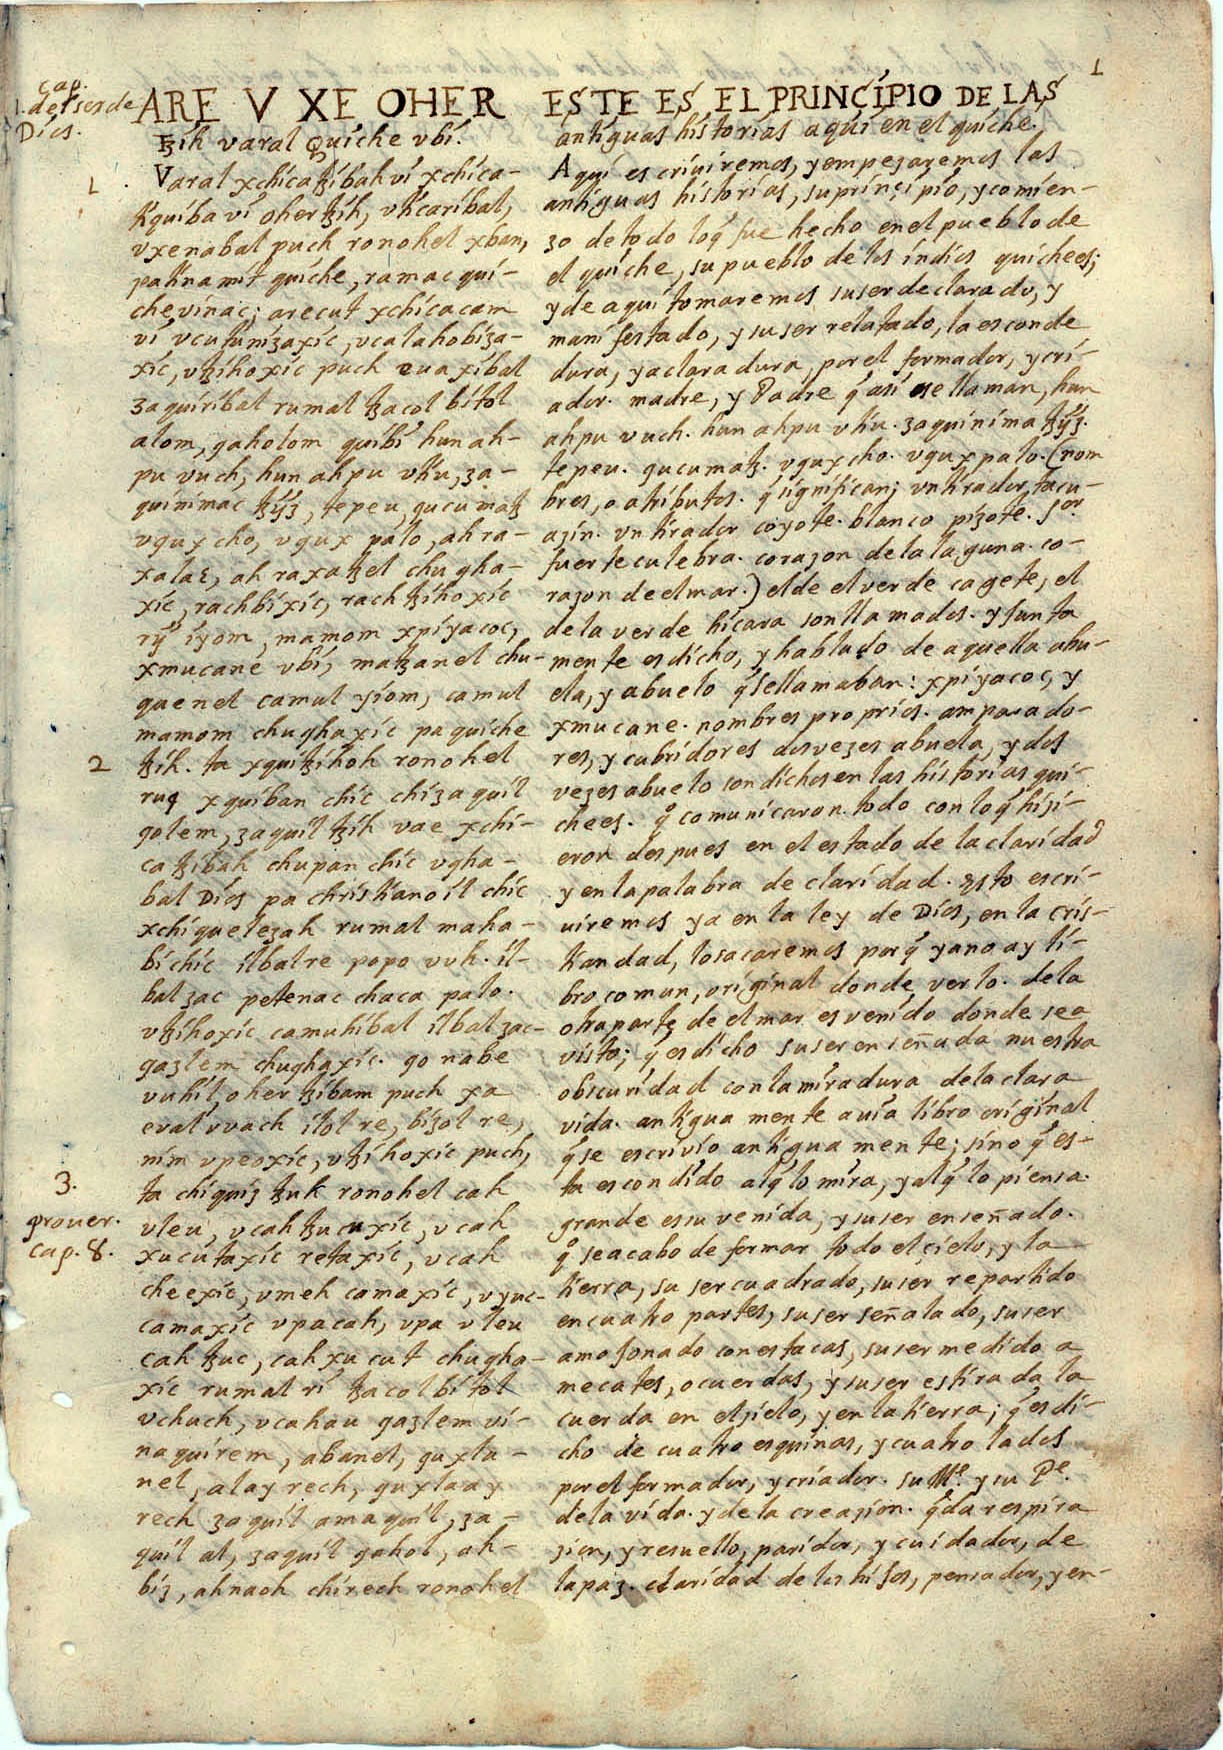 1
cap.
1. del ser de
Dios.
ARE V XE OHER
tzih varal Quiche vbi.
1
Varal xchicatzibah vi xchica-
tiquiba vi oher tzih, vticaribal,
vxenabal puch ronohel xban,
pa tinamit quiche, ramac qui-
che vinac; arecut xchicacam
vi vcutunizaxic, vcalahobiza-
xic, vtzihoxic puch euaxibal
zaquiribal rumal tzacol bitol
alom, qaholom quibi hun ah-
pu vuch, hun ahpu vtiu, za-
quinimac tzÿz, tepeu, qucumatz
vqux cho, vqux palo, ah ra-
xalaε, ah raxatzel chugha-
xic, rachbixic, rach tzihoxic
rÿ iyom, mamom xpiyacoc,
xmucane vbi, matzanel chu-
quenel camul yiom, camul
mamom chughaxic pa quiche
2
tzih. ta xquitzihoh ronohel
ruq xquiban chic chi zaquil
qolem, zaquil tzih vae xchi-
ca tzibah chupan chic vgha-
bal Dios pa christianoil chic
xchiquelezah rumal maha-
bi chic ilbal re popo vuh. il-
bal zac petenac chaca palo.
vtzihoxic camuhibal ilbal zac-
qazlem chughaxic. qo nabe
vuhil, oher tzibam puch xa
eval vvach ilol re, bizol re,
nim vpeoxic, vtzihoxic puch,
3.
ta chiquiz tzuk ronohel cah
prover.
cap. 8.
vleu, vcah tzucuxic, vcah
xucutaxic retaxic, vcah
cheexic, vmeh camaxic, vyuc-
camaxic vpa cah, vpa vleu
cah tzuc, cah xucut chugha-
xic rumal ri tzacol bitol
vchuch, vcahau qazlem vi-
naquirem, abanel, quxla-
nel, alay rech, quxlaay
rech zaquil amaquil, za-
quil al, zaquil qahol, ah-
biz, ahnaoh chirech ronohel
ESTE ES EL PRINCIPIO DE LAS
antiguas historias aqui en el quiche.
Aqui escriuiremos, y empezaremos las
antiguas historias, su prinçipio, y comien-
zo de todo loq̃ fue hecho en el pueblo de
el quiche, su pueblo de los indios quichees;
y de aqui tomaremos su ser declarado, y
manifestado, y su ser relatado, la esconde
dura, y aclaradura, por el formador, y cri-
ador. madre, y Padre q̃ asi se llaman, hun
ahpu vuch. hun ahpu vtiu. zaquinima tzÿz.
tepeu. qucumatz. vqux cho. vqux palo. (nom
bres, o atributos. q̃ significan; vn tirador, tacu-
azin. vn tirador coyote. blanco pizote. Sor
fuerte culebra. corazon de la laguna. co-
razon de el mar.) el de el verde cagete, el
de la verde hicara son llamados. y junta
mente es dicho, y hablado de aquella abu-
ela, y abuelo q̃ se llamaban: xpiyacoc, y
xmucane. nombres proprios. amparado-
res, y cubridores dos vezes abuela, y dos
vezes abuelo son dichos en las historias qui-
chees. q̃ comunicaron todo con loq̃ hizi-
eron despues en el estado de la claridad
y en la palabra de claridad. Esto escri-
uiremos ya en la ley de Dios, en la cris-
tiandad, lo sacaremos porq̃ ya no ay li-
bro comun, original donde verlo. de la
otra parte de el mar es venido donde sea
visto; q̃ es dicho su ser enseñada nuestra
obscuridad con la miradura de la clara
vida. antigua mente auia libro original
q̃ se escrivio antigua mente; sino q̃ es-
ta escondido alq̃ lo mira, y alq̃ lo piensa.
grande es su venida, y su ser enseñado.
q̃ se acabo de formar todo el çielo, y la
tierra, su ser cuadrado, su ser repartido
en cuatro partes, su ser señalado, su ser
amojonado con estacas, su ser medido a
mecates, o cuerdas, y su ser estirada la
cuerda en el zielo, y en la tierra; q̃ es di-
cho de cuatro esquinas, y cuatro lados
por el formador, y criador. su Me. y su Pe.
de la vida. y de la creazion. q̃ da respira
zion, y resuello, paridor, y cuidador, de
la paz. claridad de los hijos, pensador, y en-